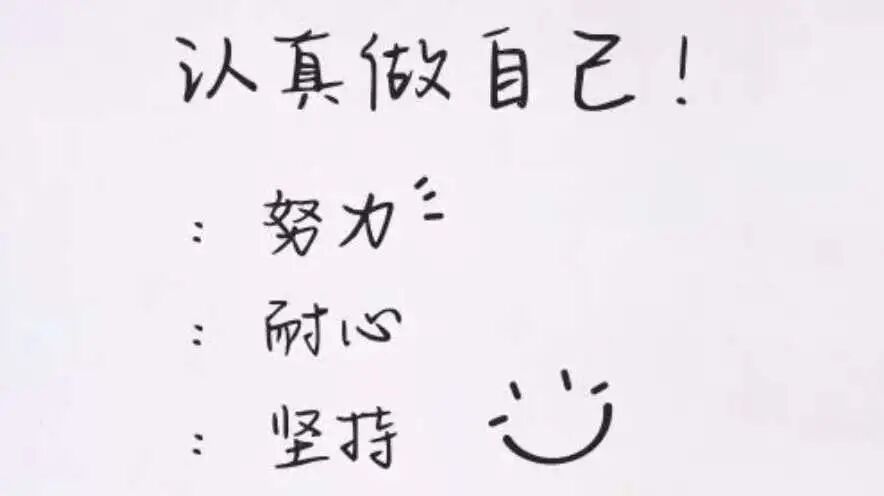 认真做自己!
: 努力
: 耐心
: 坚持